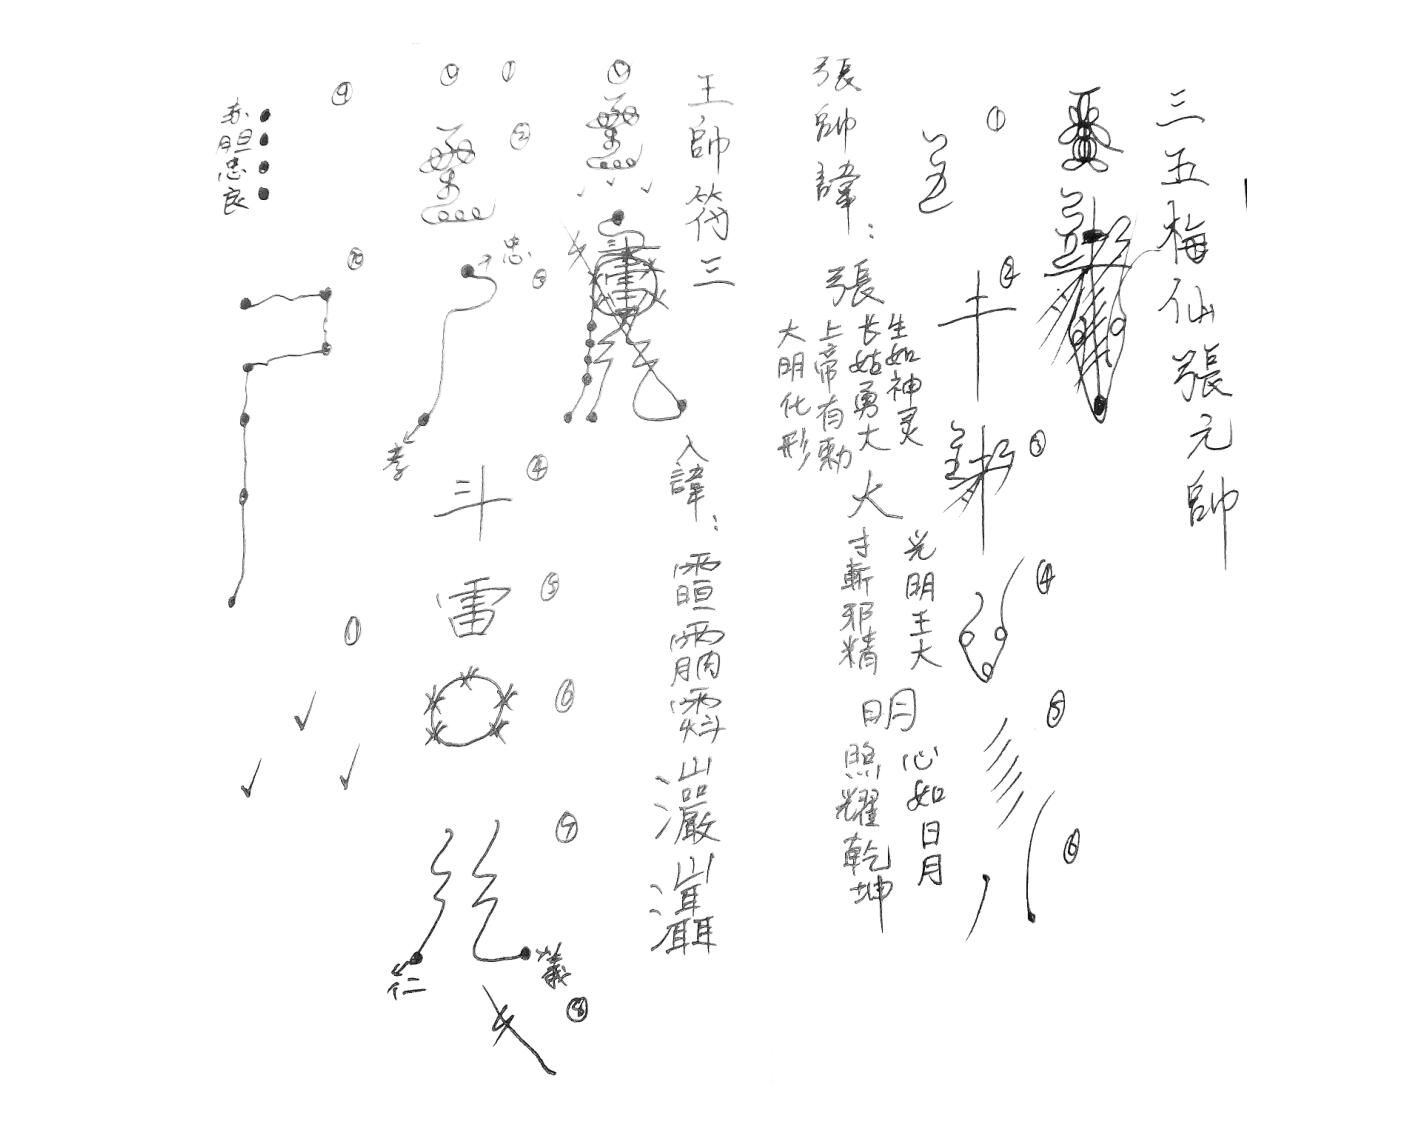 三五梅仙張元帥
①
②
③
④
⑤
⑥
張帥諱：張
生如神灵
长姑勇大
上帝有勅
大明化形
大
光明王大
寸斬邪精
明
心如日月
照耀乾坤
王帥符三
入諱：
①
②
忠
③
孝
斗
④
雷
⑤
⑥
⑦
仁
義
⑧
⑨
赤胆忠良
⑩